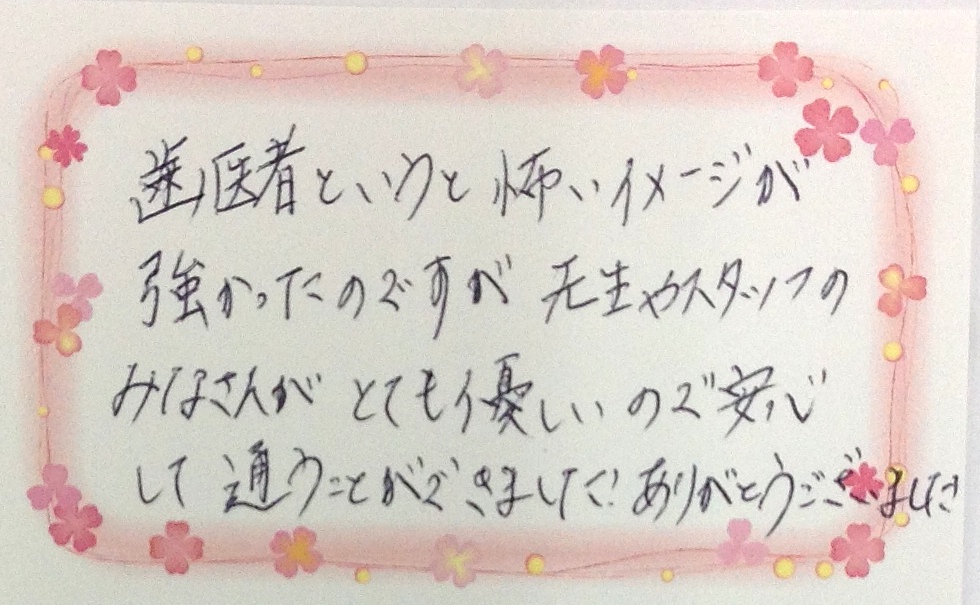 歯医者というと怖いイメージが
強かったのですが 先生やスタッフの
みなさんが とても優しいので安心
して 通うことができました! ありがとうございました